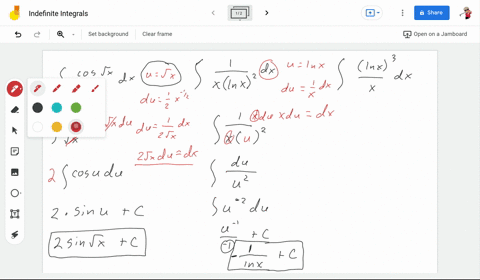 Indefinite Integrals
1/2
Share
Set background
Clear frame
Open on a Jamboard
cos√x dx
u = √x
du = ½ x^(-1/2)
du = 1/(2√x) dx
2√x du = dx
2 ∫ cos u du
2 · sin u + C
2 sin √x + C
∫ 1/(x(ln x)²) dx
u = ln x
du = 1/x dx
x du = dx
∫ 1/(x(u)²) x du
∫ du/u²
∫ u⁻² du
u⁻¹/-1 + C
-1/ln x + C
∫ (ln x)³/x dx